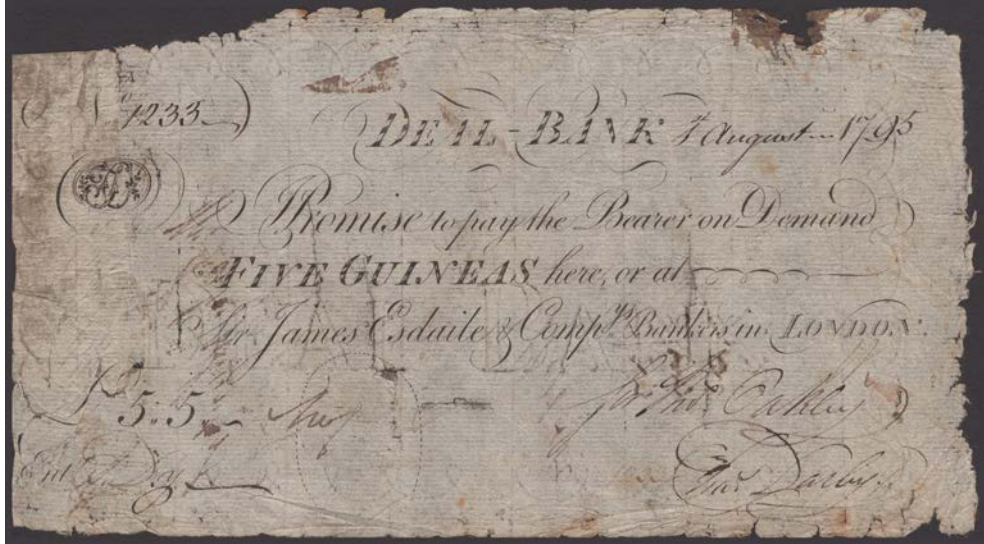 No 1233
DEAL-BANK 4 August 1795
I PROMISE to pay the Bearer on Demand
FIVE GUINEAS here, or at
Sir James Esdaile & Compys. Bankers in LONDON.
£ 5:5
for Thos. Oakley
Entd
Thos. Darby